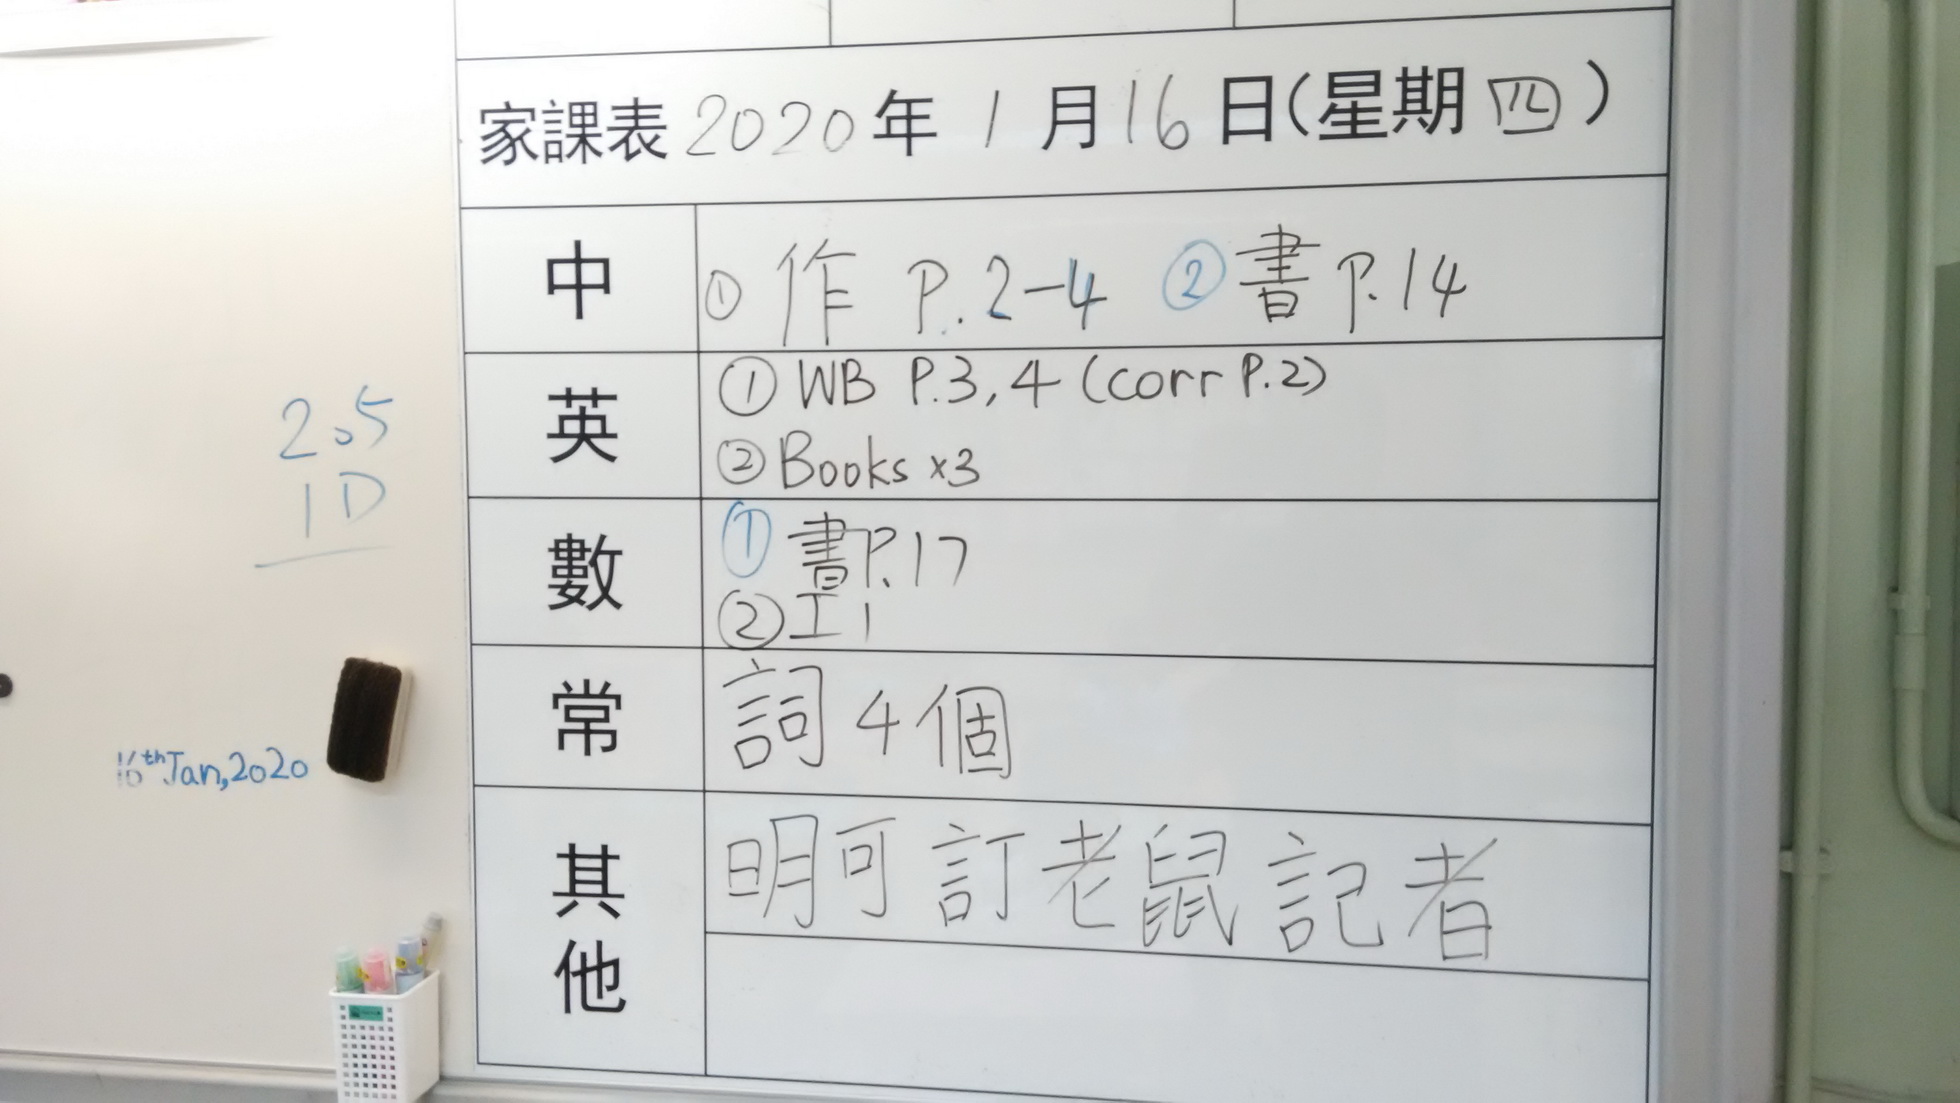 家課表 2020 年 1 月 16 日(星期 四)
中
① 作 P.2-4 ② 書 P.14
英
① WB P.3,4 (corr P.2)
② Books x3
數
① 書P.17
② 工1
常
詞4個
其他
明可訂老鼠記者
2.5
1D
16th Jan,2020